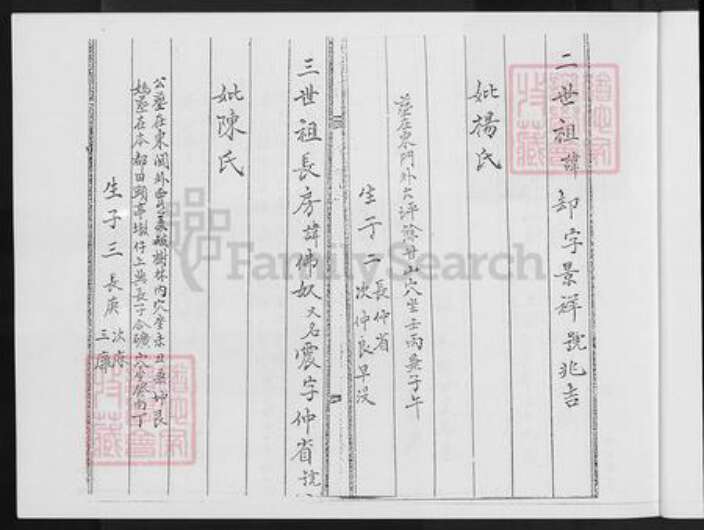 二世祖諱却字景祥號兆吉
妣楊氏
墓在東門外大坪 山穴坐壬丙兼子午
生子二長仲省
次仲良早沒
三世祖長房諱佛奴又名震字仲省號
妣陳氏
公墓在東關外 樹林內穴坐未丑兼坤艮
媽墓在本都田頭亭墩仔上與長子合礦穴坐癸丁
生子三長庚
次
三
FamilySearch